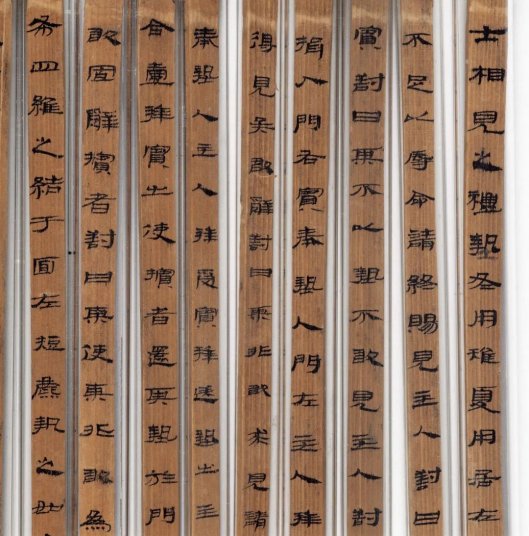 士相見之禮摯冬用雉夏用居左
不足以辱命請終賜見主人對曰
賓對曰某不以摯不敢見主人對
揖入門右賓奉摯入門左主人拜
得見矣敢辭對曰某非敢求見請
奉摯入主人拜受賓拜送摯出主
命壹拜賓出使擯者還某摯於門
敢固辭擯者對曰某使某非敢為
布四維之結于面左麋執之如